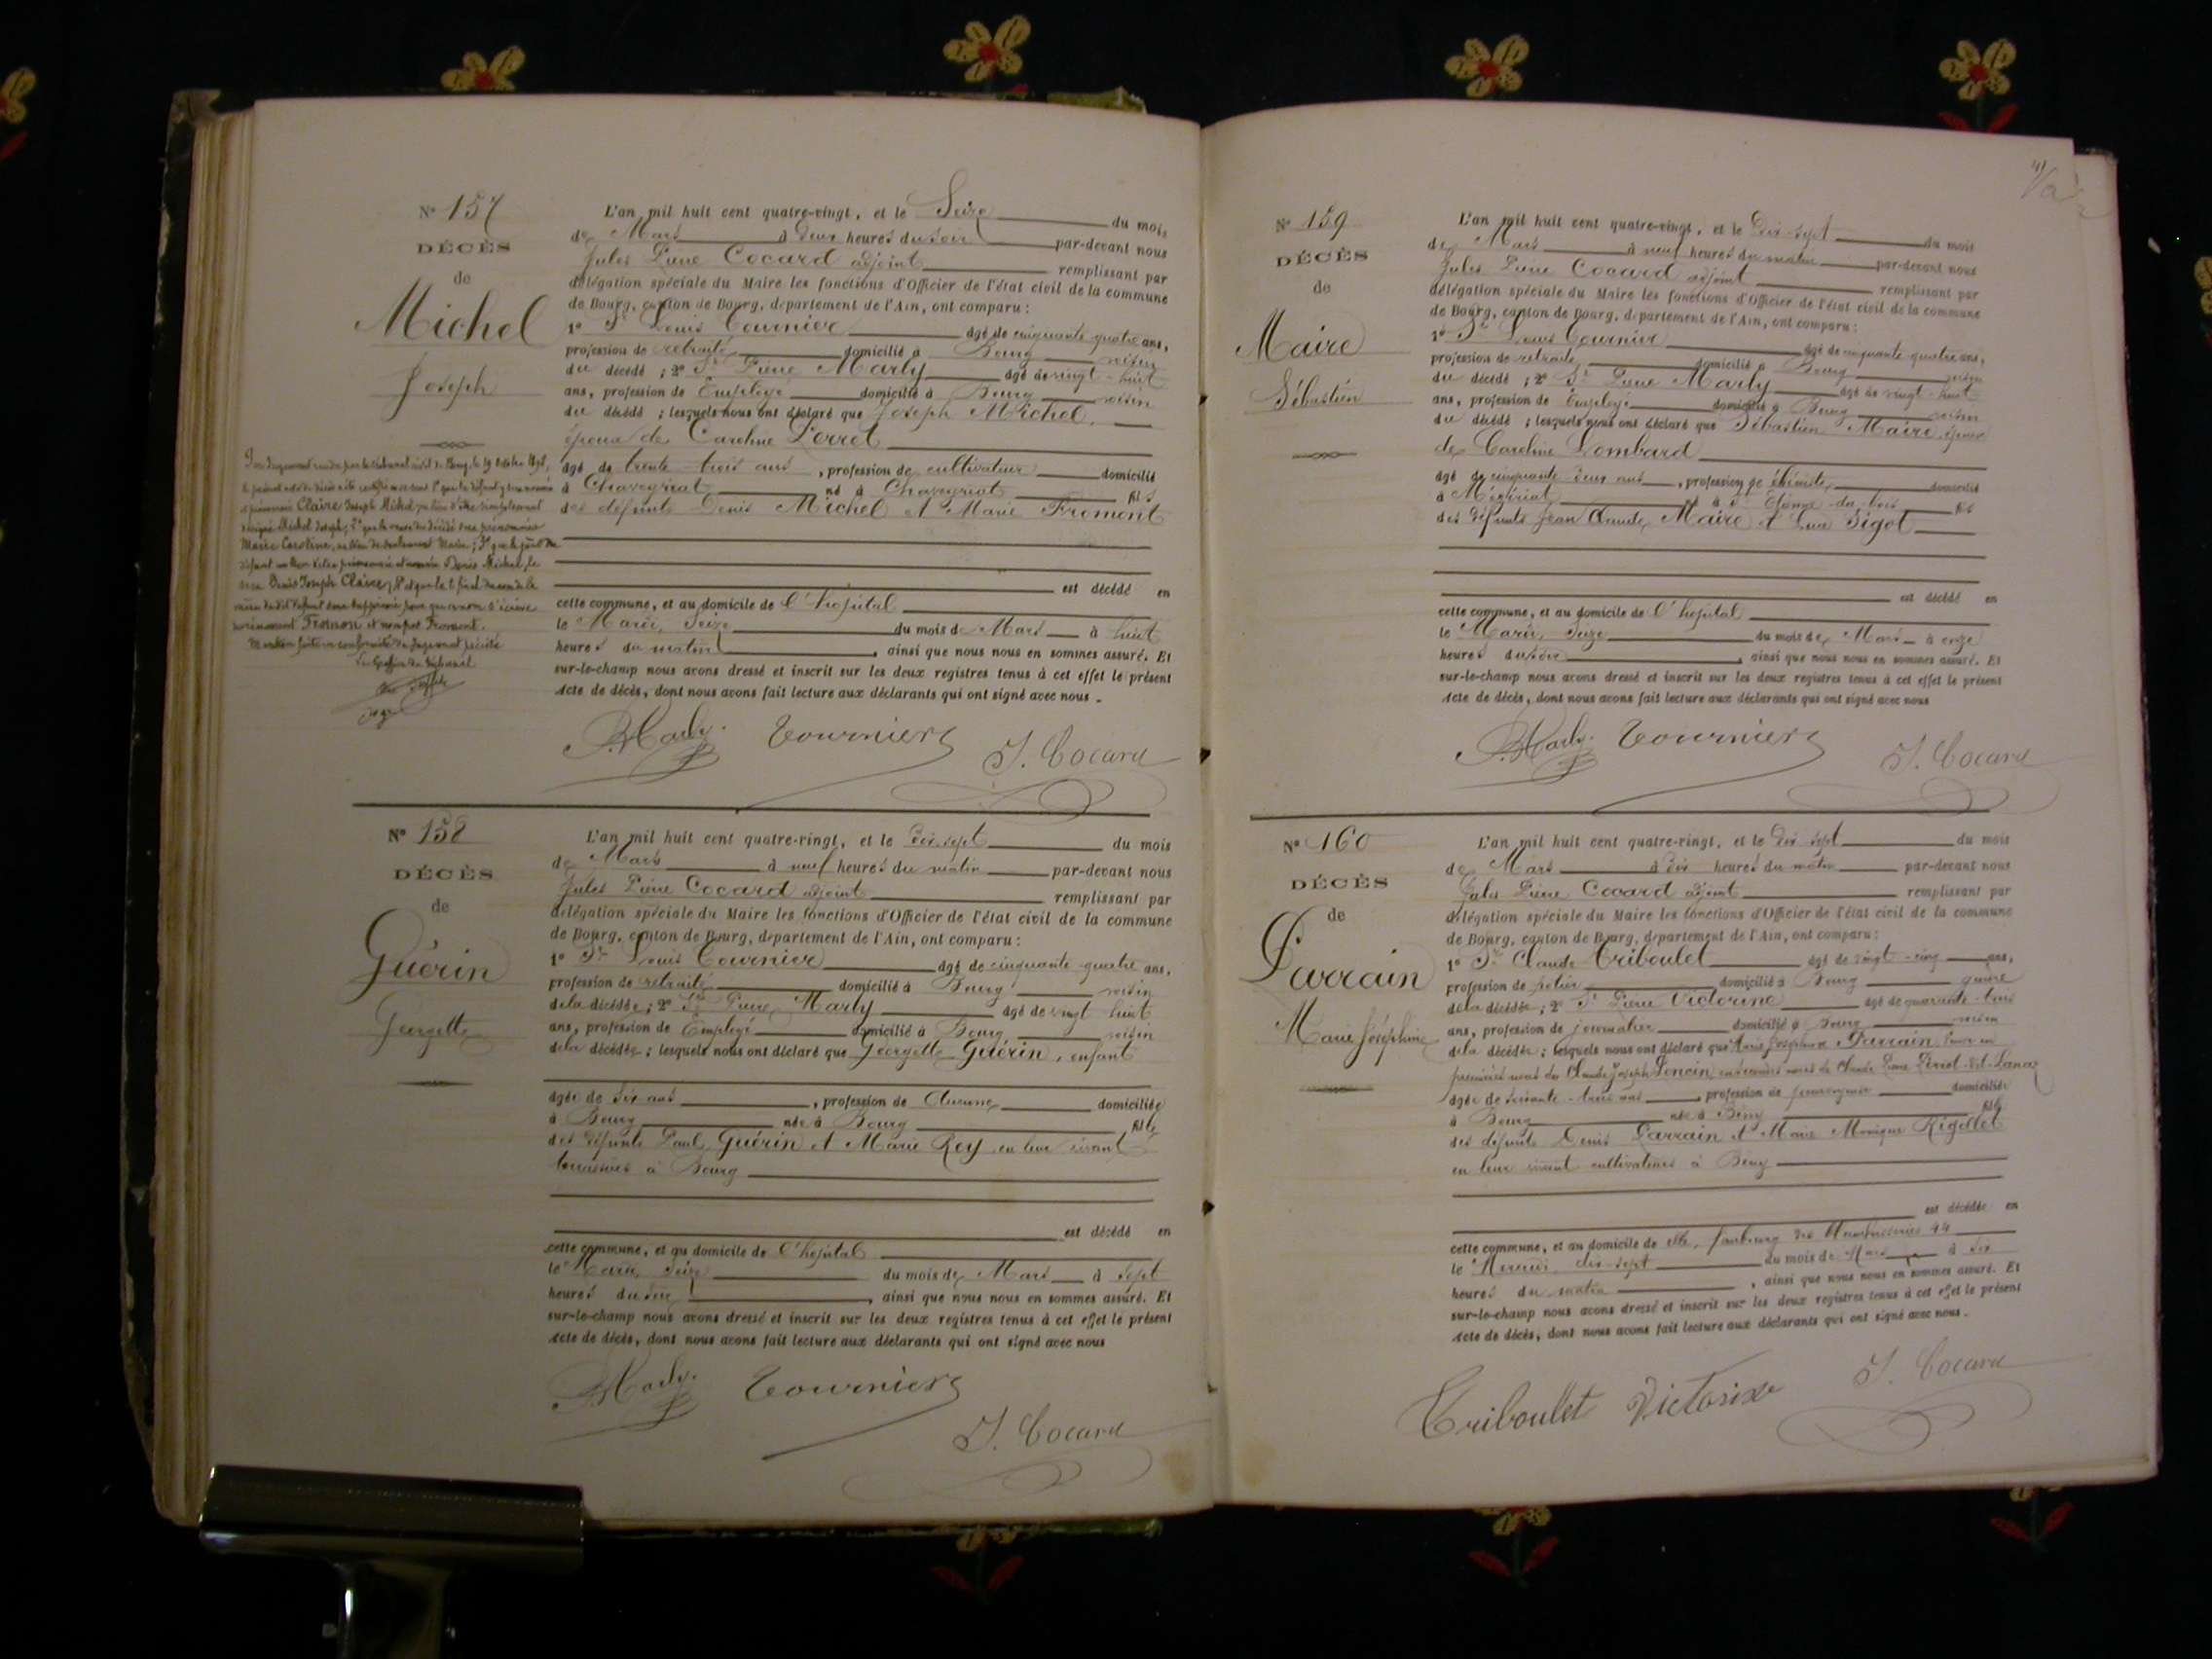 N° 157
DÉCÈS
de
Michel
Joseph
L'an mil huit cent quatre-vingt, et le Seize du mois
de Mars à deux heures du soir par-devant nous
Jules Pierre Cocard adjoint remplissant par
délégation spéciale du Maire les fonctions d'Officier de l'état civil de la commune
de Bourg, canton de Bourg, département de l'Ain, ont comparu :
1° Sr Louis Tournier âgé de cinquante quatre ans,
profession de retraité domicilié à Bourg voisin
du décédé ; 2° Sr Pierre Marly âgé de vingt-huit
ans, profession de Employé domicilié à Bourg voisin
du décédé ; lesquels nous ont déclaré que Joseph Michel,
époux de Caroline Perret
âgé de trente trois ans, profession de cultivateur domicilié
à Chaveyriat né à Chaveyriat fils
des défunts Denis Michel et Marie Fromont
est décédé en
cette commune, et au domicile de l'hôpital
le Mardi Seize du mois de Mars à huit
heures du matin, ainsi que nous nous en sommes assuré. Et
sur-le-champ nous avons dressé et inscrit sur les deux registres tenus à cet effet le présent
acte de décès, dont nous avons fait lecture aux déclarants qui ont signé avec nous.
Par Jugement rendu par le tribunal civil de Bourg le 19 Octobre
le présent acte de décès a été rectifié en ce sens 1° que le défunt y sera nommé
et prénommé Claire Joseph Michel, au lieu d'être simplement
désigné Michel Joseph; 2° que la veuve du décédé sera prénommée
Marie Caroline, au lieu de seulement
défunt au lieu d'être prénommé et nommé Denis Michel, le
sera Denis Joseph Claire;
mère du dit défunt sera supprimé pour que ce nom s'écrive
Fromon et non pas Fromont.
Mention faite en conformité du Jugement précité
Le Greffier du Tribunal
P. Marly Tournier J. Cocard
N° 158
DÉCÈS
de
Guérin
Georgette
L'an mil huit cent quatre-vingt, et le dix-sept du mois
de Mars à neuf heures du matin par-devant nous
Jules Pierre Cocard adjoint remplissant par
délégation spéciale du Maire les fonctions d'Officier de l'état civil de la commune
de Bourg, canton de Bourg, département de l'Ain, ont comparu :
1° Sr Louis Tournier âgé de cinquante quatre ans,
profession de retraité domicilié à Bourg voisin
de la décédée ; 2° Sr Pierre Marly âgé de vingt huit
ans, profession de Employé domicilié à Bourg voisin
de la décédée ; lesquels nous ont déclaré que Georgette Guérin, enfant
âgée de six ans, profession de Aucune domiciliée
à Bourg née à Bourg fille
des défunts Paul Guérin et Marie Rey en leur vivant
à Bourg
est décédé en
cette commune, et au domicile de l'hôpital
le Mardi Seize du mois de Mars à sept
heures du soir, ainsi que nous nous en sommes assuré. Et
sur-le-champ nous avons dressé et inscrit sur les deux registres tenus à cet effet le présent
acte de décès, dont nous avons fait lecture aux déclarants qui ont signé avec nous
P. Marly Tournier
J. Cocard
N° 159
DÉCÈS
de
Maire
Sébastien
L'an mil huit cent quatre-vingt, et le Dix-sept du mois
de Mars à neuf heures du matin par-devant nous
Jules Pierre Cocard adjoint remplissant par
délégation spéciale du Maire les fonctions d'Officier de l'état civil de la commune
de Bourg, canton de Bourg, département de l'Ain, ont comparu :
1° Sr Louis Tournier âgé de cinquante quatre ans,
profession de retraité domicilié à Bourg voisin
du décédé ; 2° Sr Pierre Marly âgé de vingt-huit
ans, profession de Employé domicilié à Bourg voisin
du décédé ; lesquels nous ont déclaré que Sébastien Maire époux
de Caroline Lombard
âgé de cinquante-deux ans, profession de ébéniste domicilié
à Mézériat né à St Etienne-du-bois fils
des défunts Jean Claude Maire et Sigot
est décédé en
cette commune, et au domicile de l'hôpital
le Mardi Seize du mois de Mars à onze
heures du soir, ainsi que nous nous en sommes assuré. Et
sur-le-champ nous avons dressé et inscrit sur les deux registres tenus à cet effet le présent
acte de décès, dont nous avons fait lecture aux déclarants qui ont signé avec nous
P. Marly Tournier
J. Cocard
N° 160
DÉCÈS
de
Parrain
Marie Joséphine
L'an mil huit cent quatre-vingt, et le Dix sept du mois
de Mars à dix heures du matin par-devant nous
Jules Pierre Cocard adjoint remplissant par
délégation spéciale du Maire les fonctions d'Officier de l'état civil de la commune
de Bourg, canton de Bourg, département de l'Ain, ont comparu :
1° Sr Claude Triboulet âgé de vingt-cinq ans,
profession de potier domicilié à Bourg gendre
de la décédée ; 2° Sr Pierre Victorine âgé de quarante-trois
ans, profession de journalier domicilié à Bourg voisin
de la décédée ; lesquels nous ont déclaré que Marie Joséphine Parrain, veuve en
premières noces de Claude Joseph Poncin, en secondes noces de Claude Pierre
âgée de soixante-trois ans, profession de domiciliée
à Bourg née à Bény fille
des défunts Denis Parrain et Marie Monique Rigollet
en leur vivant cultivateurs à Bény
est décédée en
cette commune, et au domicile de elle, faubourg des 44
le Mercredi dix-sept du mois de Mars à six
heures du matin, ainsi que nous nous en sommes assuré. Et
sur-le-champ nous avons dressé et inscrit sur les deux registres tenus à cet effet le présent
acte de décès, dont nous avons fait lecture aux déclarants qui ont signé avec nous.
Triboulet J. Cocard